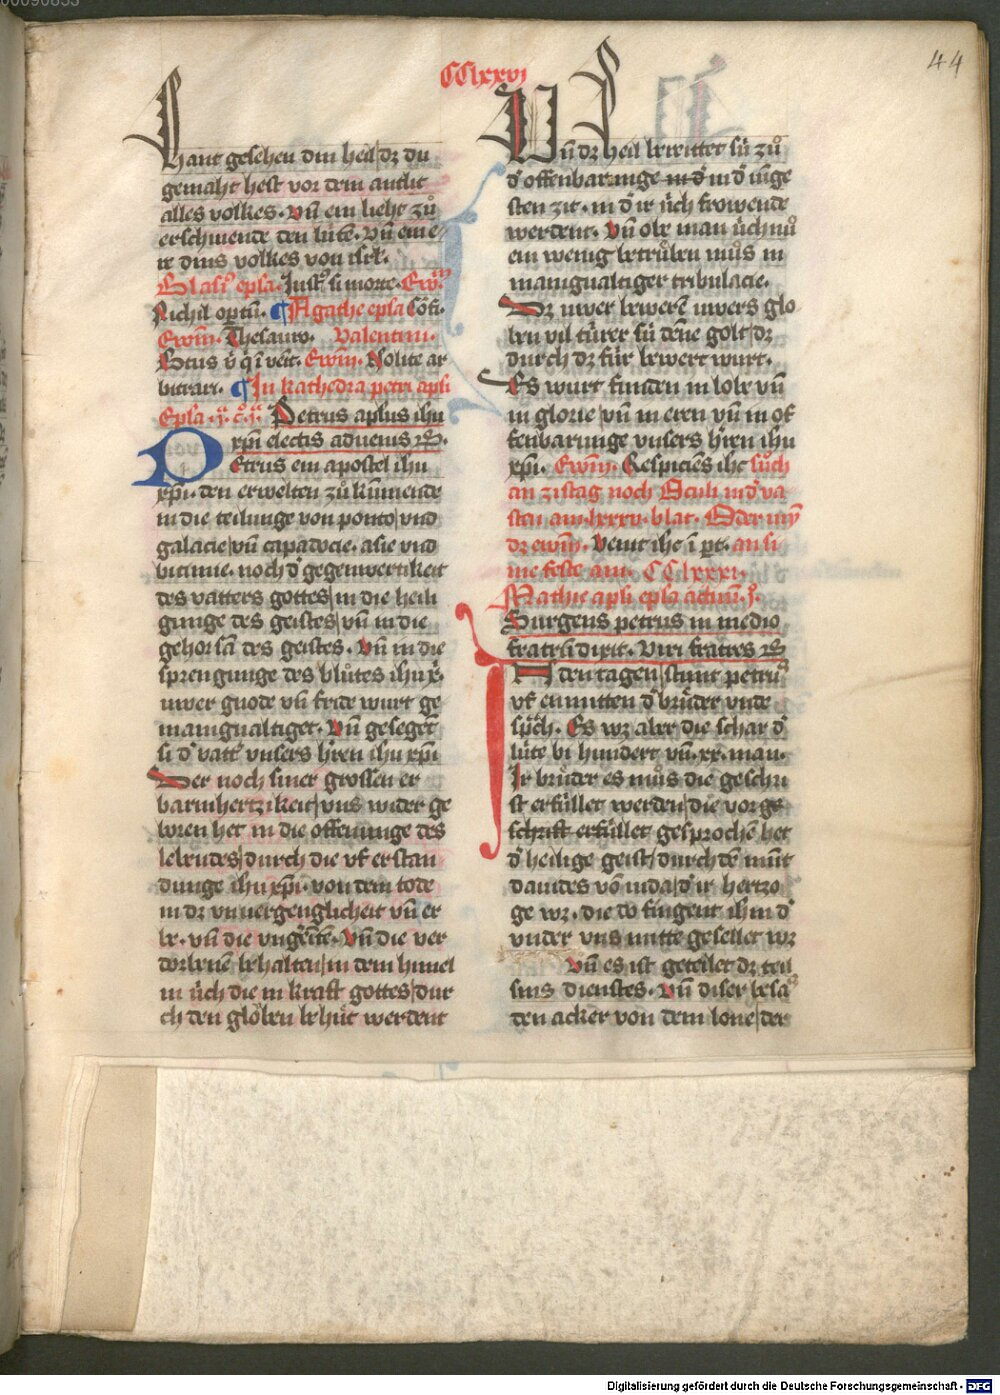 44
CClxxvi
hant gesehen din heil dz du
gemaht hest vor dem antlit
alles volkes. vn̄ ein lieht zů
erschinende den lúten. vn̄ ein e
re dins volkes von isrl.
Blasiꝰ epla. Justꝰ si morte. Ewm̄
Nichil optū. ¶ Agathe epla Cōfi.
Ewm̄. Thesauro. Valentini.
Scitus ewm̄. Nolite ar
bitrari. ¶ In kathedra petri apli
Epla. Petrus aplus ihu
xpi electis aduenis
Petrus ein apostel ihu
xpi. den erwelten zů kūmende
in die teilunge von ponto vnd
galacie vn̄ capadocie. asie vnd
bitinie. noch d' gegenwertikeit
des vatters gottes in die heili
gunge des geistes vn̄ in die
gehorsā des geistes. vn̄ in die
sprengunge des blůtes ihu x̄.
uwer gnode vn̄ fride wurt ge
manigualtiget. Vn̄ geseget
si d' vatt' vnsers h'ren ihu xpi
Der noch siner grossen er
barmhertzikeit vns wider ge
boren het in die offenunge des
lebendes durch die vf erstan
dunge ihu xpi. von dem tode
in dz vnuergenglicheit vn̄ er
be. vn̄ die vngēēte. Vn̄ die ver
dorbene behalten in dem himel
in úch die in kraft gottes dur
ch den glöben behůt werdent
Vn̄ dz heil bereittet sú zů
d' offenbarunge in d' in d' iūge
sten zit. in d' ir úch frowende
werdent. Vn̄ obe man úch nů
ein wenig betrůben můs in
manigualtiger tribulacie.
Dz uwer bewerē uwers glo
ben vil túrer sú dēne golt dz
durch dz fúr bewert wurt.
Es wurt funden in lobe vn̄
in glorie vn̄ in eren vn̄ in of
fenbarunge vnsers h'ren ihu
xpi. Ewm̄. Respiciēs ihc sůch
an zistag noch Oculi in d' va
sten am. lxxxv. blat. Oder nȳ
dz ewm̄. Venit ihc ī pt. an si
me feste am. CClxxxi.
Mathie apli epla actuū. j.
Surgens petrus in medio
fratrū dixit. Viri fratres
In den tagen stūnt petrus
vf en mitten d' brůder vnde
sp̄ch. Es wz aber die schar d'
lúte bi hundert vn̄. xx. man.
Ir brůder es můs die geschri
ft erfúllet werden die vor ge
schrift erfúllet gesprochē het
d' heilige geist durch dē mūt
dauides vō iuda d' ir hertzo
ge wz. die do fingent ihm d'
vnder vns mitte gesellet wz
Vn̄ es ist geteilet dz teil
sins dienstes. Vn̄ diser besas
den acker von dem lone der
Digitalisierung gefördert durch die Deutsche Forschungsgemeinschaft - DFG